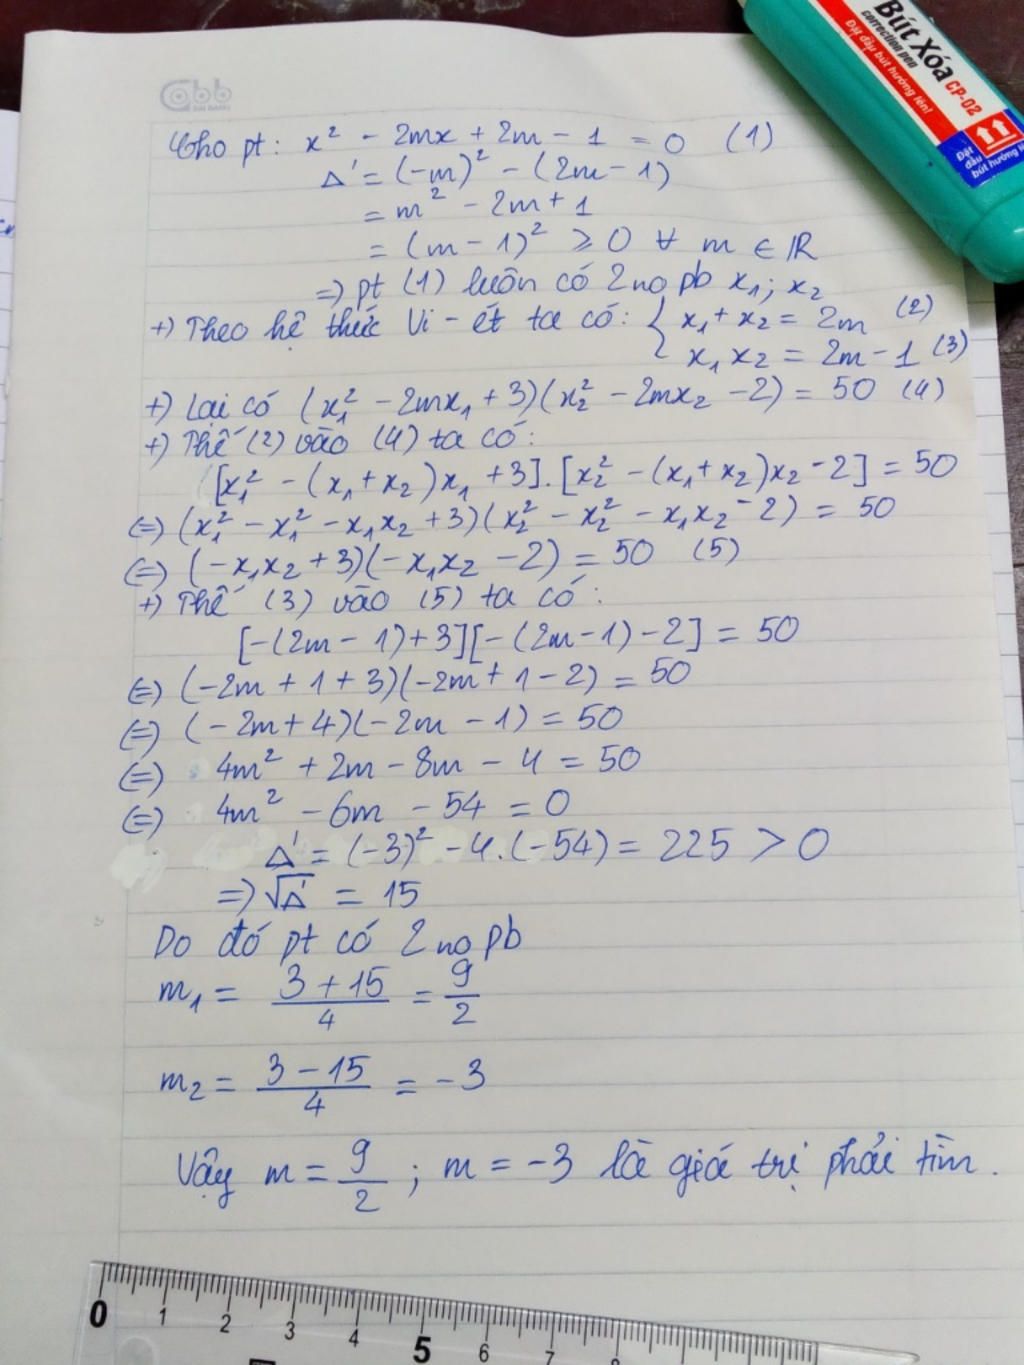 abb
Bút Xóa CP-02
correction pen
Đặt đầu bút hướng lên!
Đặt đầu bút hướng lê
Cho pt: x² - 2mx + 2m - 1 = 0 (1)
Δ' = (-m)² - (2m - 1)
= m² - 2m + 1
= (m - 1)² ⩾ 0 ∀ m ∈ ℝ
=> pt (1) luôn có 2 no pb x₁; x₂
+) Theo hệ thức Vi-ét ta có: { x₁ + x₂ = 2m (2)
x₁ x₂ = 2m - 1 (3)
+) Lại có (x₁² - 2mx₁ + 3)(x₂² - 2mx₂ - 2) = 50 (4)
+) Thế (2) vào (4) ta có:
[x₁² - (x₁ + x₂)x₁ + 3].[x₂² - (x₁ + x₂)x₂ - 2] = 50
(=) (x₁² - x₁² - x₁x₂ + 3)(x₂² - x₂² - x₁x₂ - 2) = 50
(=) (-x₁x₂ + 3)(-x₁x₂ - 2) = 50 (5)
+) Thế (3) vào (5) ta có:
[-(2m - 1) + 3][-(2m - 1) - 2] = 50
(=) (-2m + 1 + 3)(-2m + 1 - 2) = 50
(=) (-2m + 4)(-2m - 1) = 50
(=) 4m² + 2m - 8m - 4 = 50
(=) 4m² - 6m - 54 = 0
Δ' = (-3)² - 4.(-54) = 225 > 0
=> √Δ' = 15
Do đó pt có 2 no pb
m₁ = (3 + 15)/4 = 9/2
m₂ = (3 - 15)/4 = -3
Vậy m = 9/2 ; m = -3 là giá trị phải tìm.
0 1 2 3 4 5 6 7